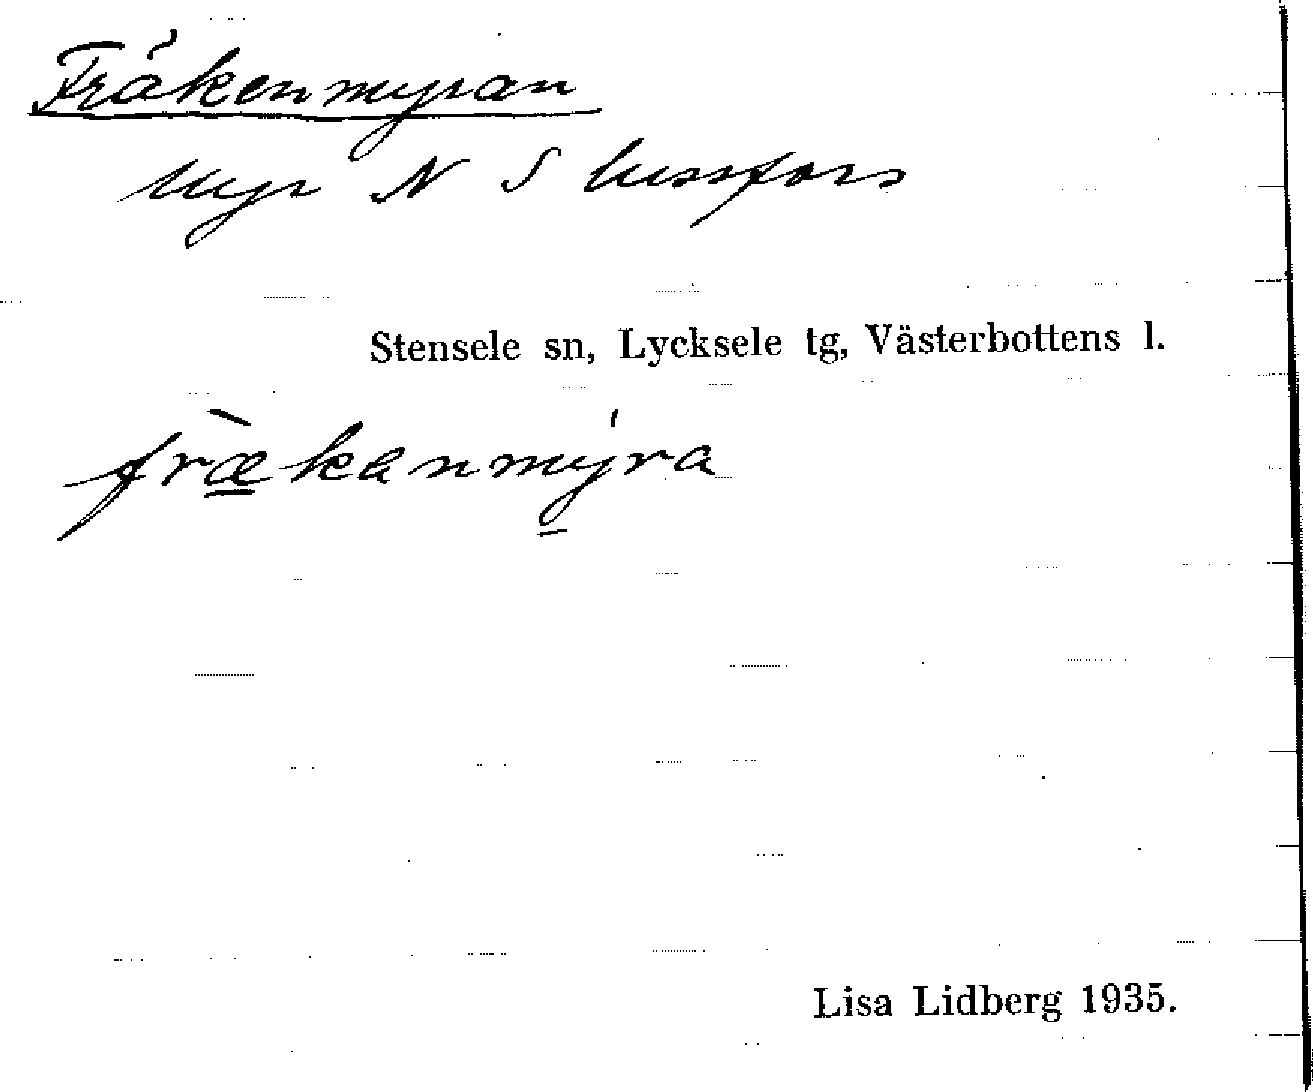 Fräkenmyran
Myr N S Lussfors
Stensele sn, Lycksele tg, Västerbottens l.
fræ̀kanmýra
Lisa Lidberg 1935.